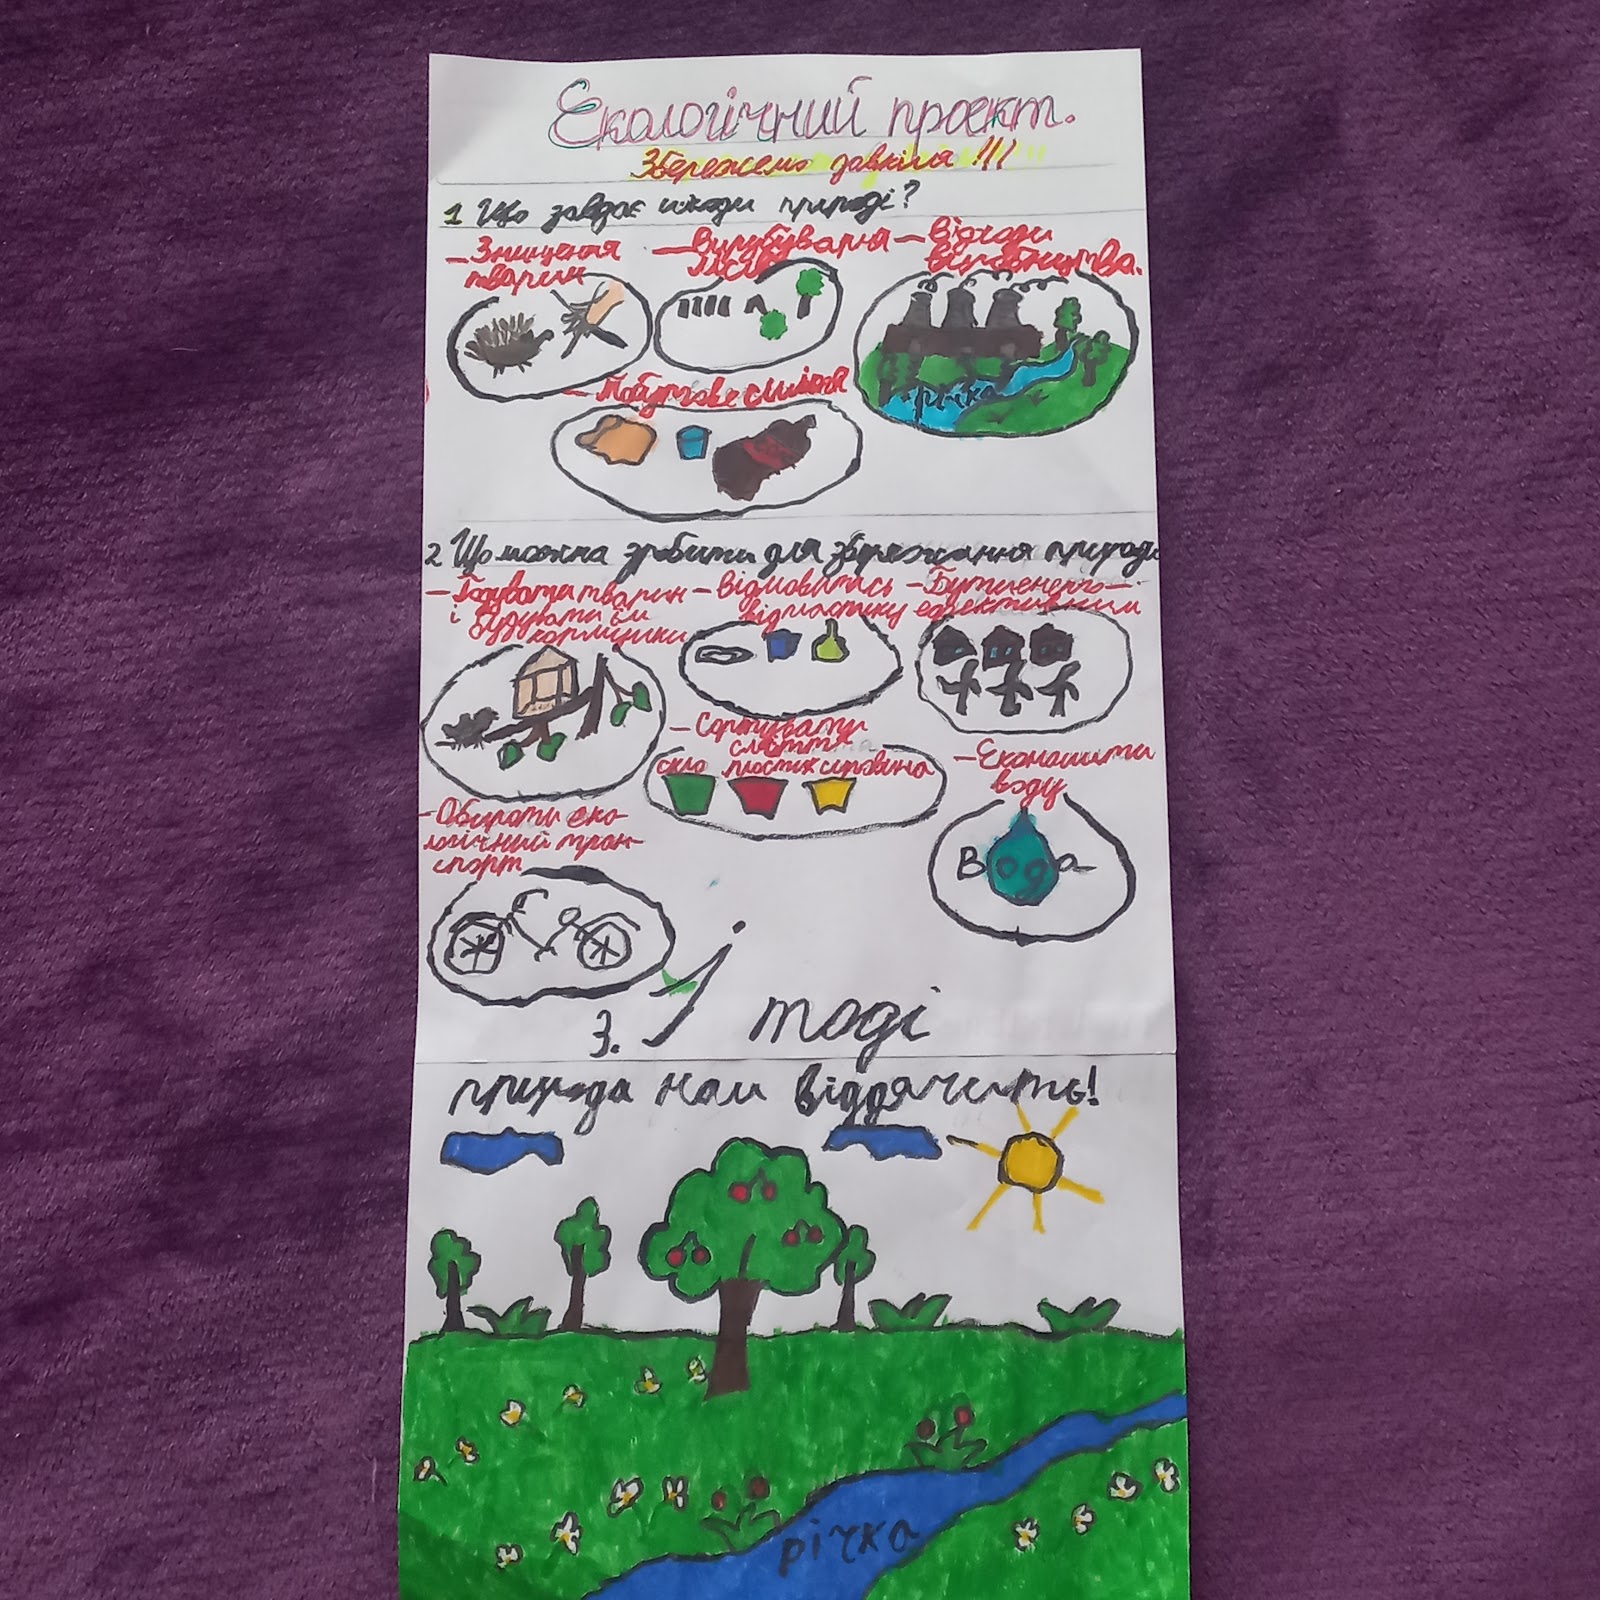 Екологічний проєкт.
Збережемо довкілля !!!
1 Що завдає шкоди природі?
– Знищення
тварин
– Вирубування
лісів
– Відходи
виробництва.
річка
– Побутове сміття
2 Що можна зробити для збереження природи
– Годувати тварин
і будувати їм
кормушки
– Відмовитись
від пластику
– Бути енерго–
ефективним
– Сортувати
сміття
скло пластик
– Економити
воду
Вода
– Обирати еко-
логічний тран-
спорт
3. І тоді
природа нам віддячить!
річка